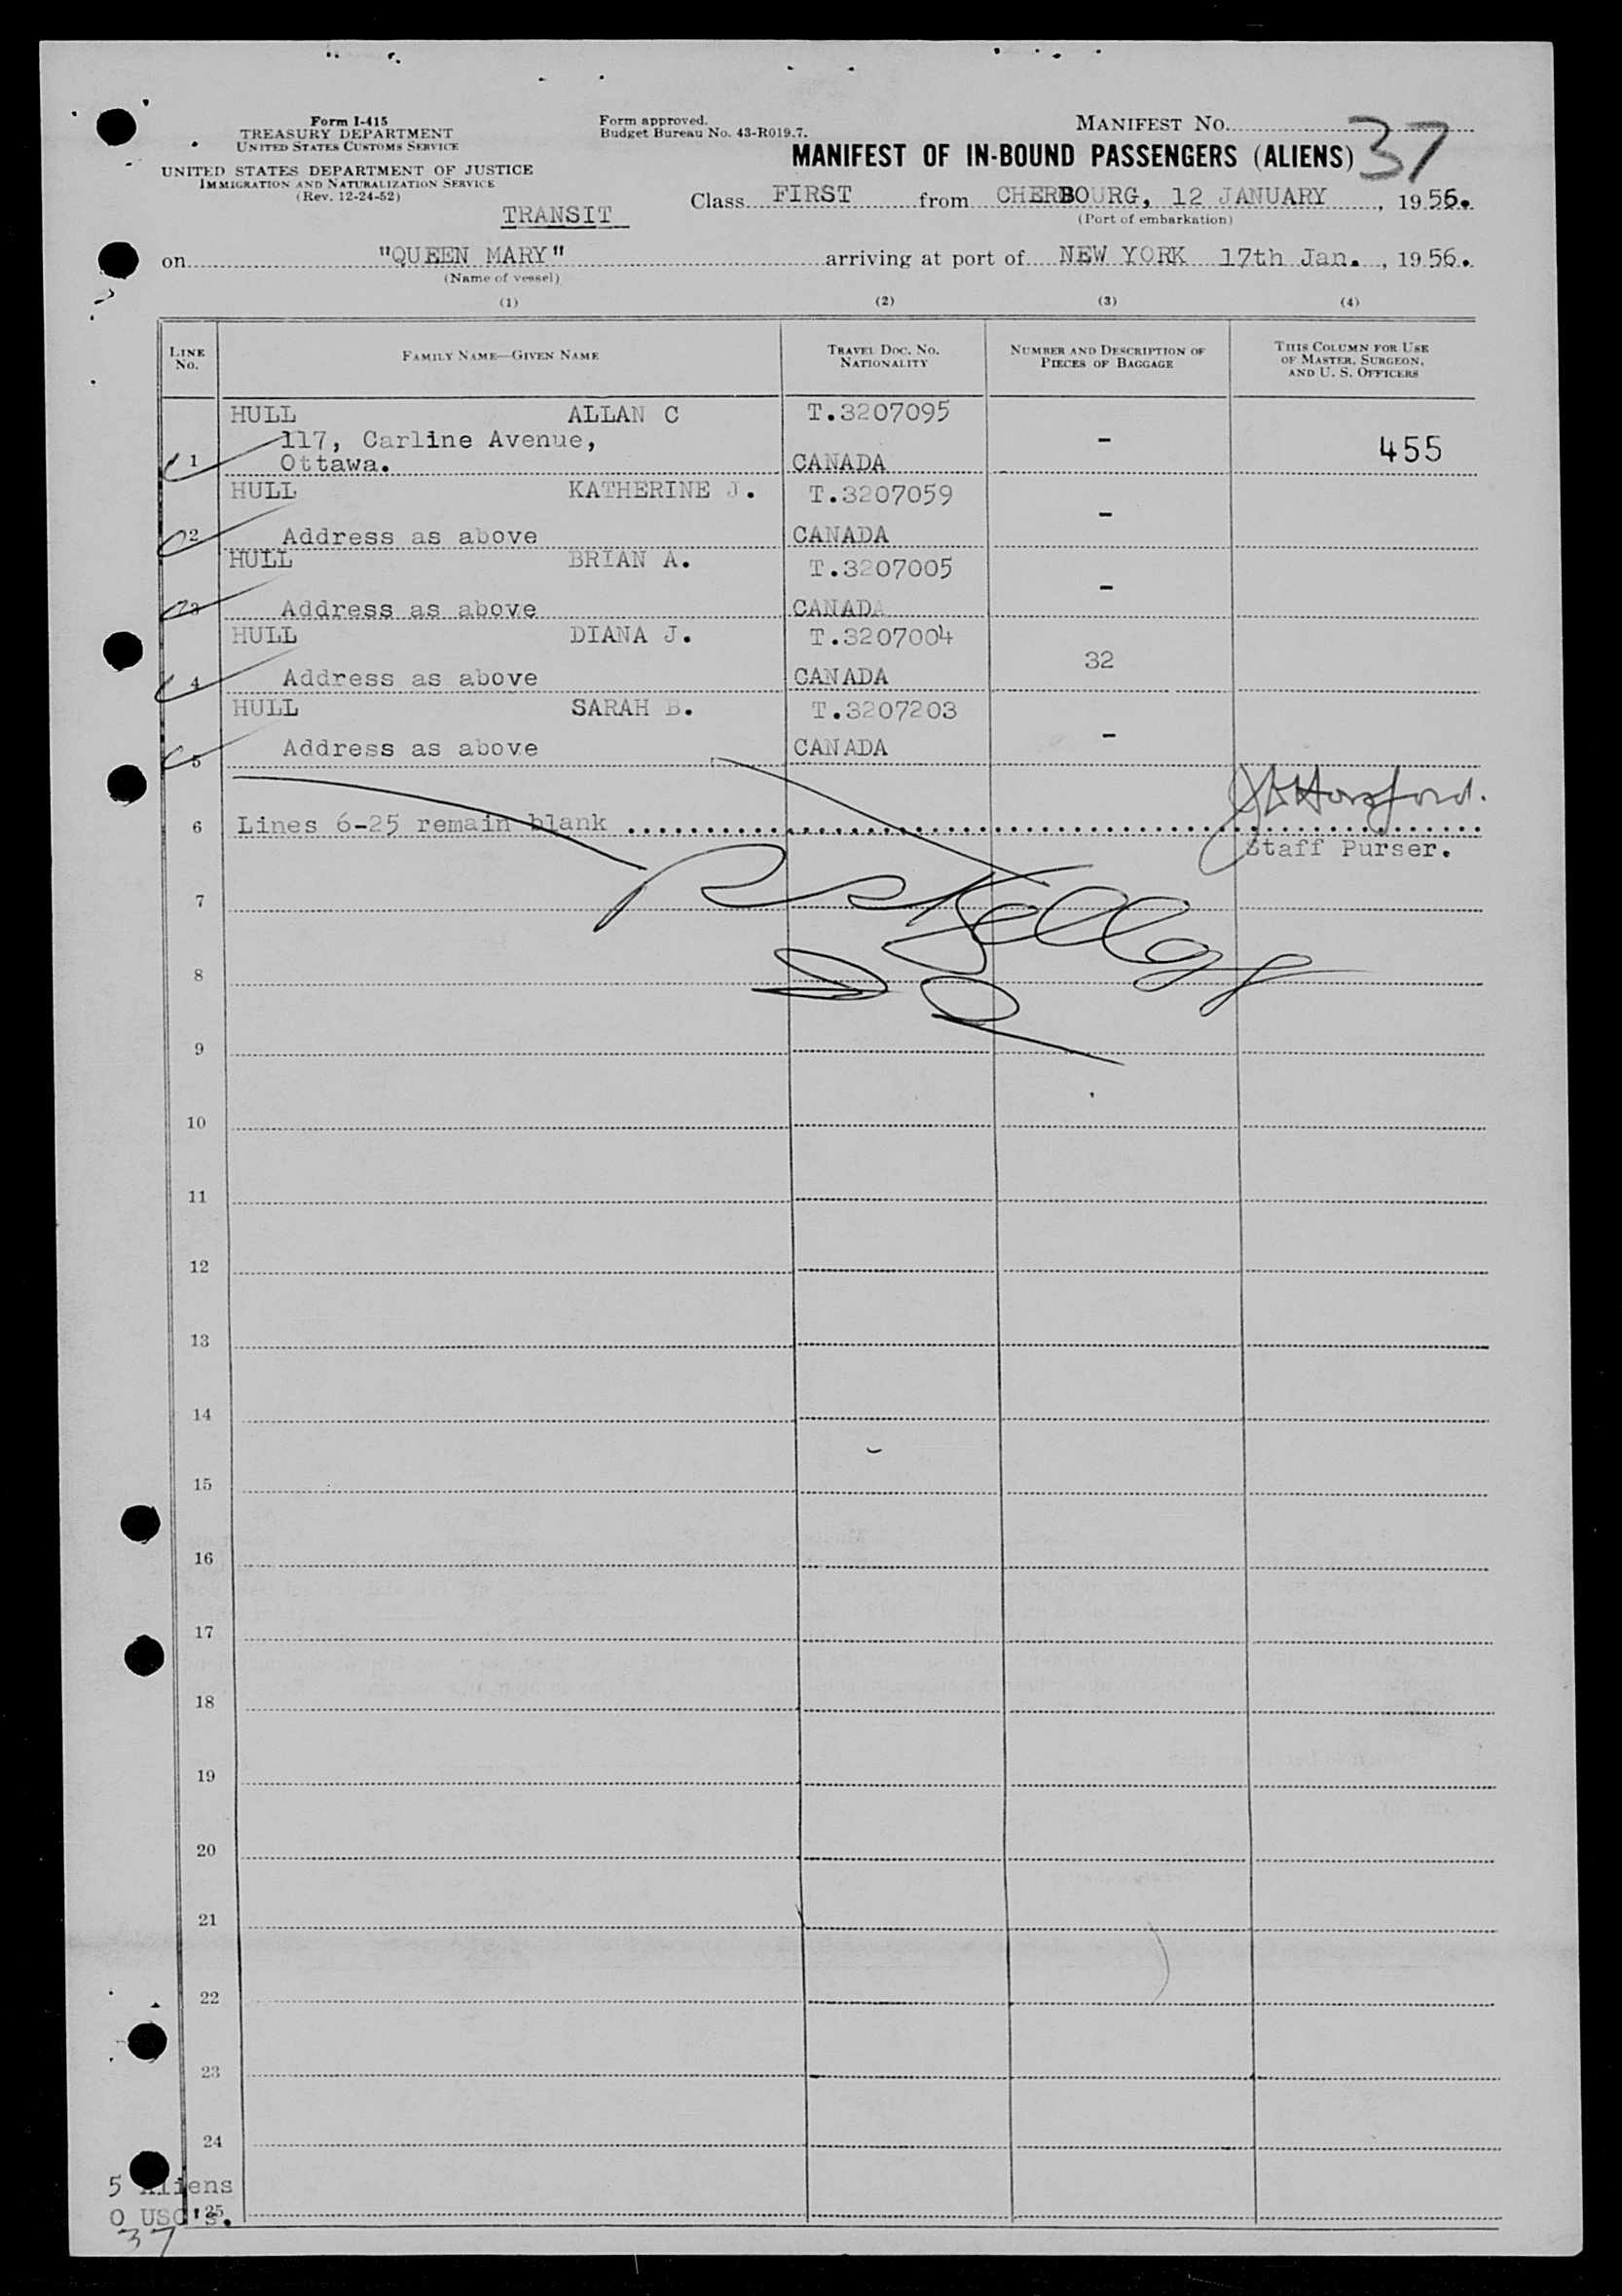 Form I-415
TREASURY DEPARTMENT
UNITED STATES CUSTOMS SERVICE
UNITED STATES DEPARTMENT OF JUSTICE
IMMIGRATION AND NATURALIZATION SERVICE
(Rev. 12-24-52)
Form approved.
Budget Bureau No. 43-R019.7.
MANIFEST NO. 37
MANIFEST OF IN-BOUND PASSENGERS (ALIENS)
TRANSIT
Class FIRST from CHERBOURG, 12 JANUARY, 1956.
(Port of embarkation)
on "QUEEN MARY" arriving at port of NEW YORK 17th Jan., 1956.
(Name of vessel)
(1) (2) (3) (4)
LINE NO. FAMILY NAME—GIVEN NAME TRAVEL DOC. NO. NATIONALITY NUMBER AND DESCRIPTION OF PIECES OF BAGGAGE THIS COLUMN FOR USE OF MASTER, SURGEON, AND U. S. OFFICERS
HULL ALLAN C T.3207095
117, Carline Avenue, - 455
1 Ottawa. CANADA
HULL KATHERINE J. T.3207059
-
2 Address as above CANADA
HULL BRIAN A. T.3207005
-
3 Address as above CANADA
HULL DIANA J. T.3207004
32
4 Address as above CANADA
HULL SARAH B. T.3207203
-
5 Address as above CANADA
6 Lines 6-25 remain blank
Staff Purser.
7
8
9
10
11
12
13
14
15
16
17
18
19
20
21
22
23
24
5 Aliens
0 USC's. 25
37